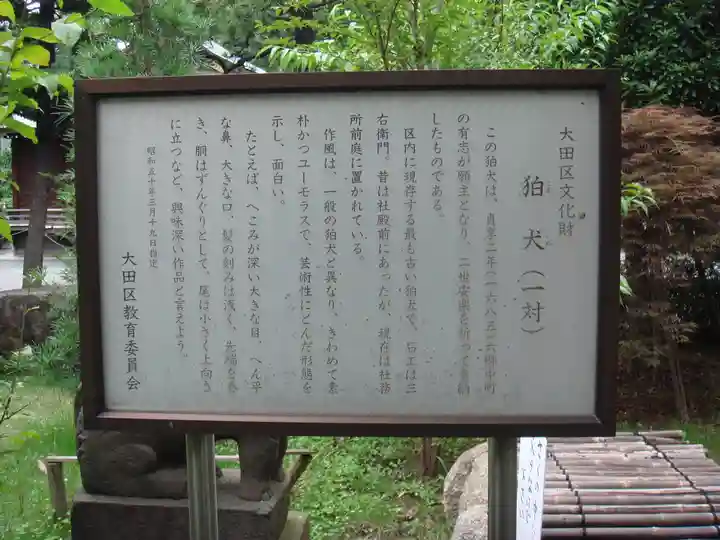 大田区文化財
狛犬（一対）
こま いぬ
この狛犬は、貞享二年（一六八五）六郷中町
の有志が願主となり、二世安楽を祈って奉納
したものである。
区内に現存する最も古い狛犬で、石工は三
右衛門。昔は社殿前にあったが、現在は社務
所前庭に置かれている。
作風は、一般の狛犬と異なり、きわめて素
朴かつユーモラスで、芸術性にとんだ形態を
示し、面白い。
たとえば、へこみが深い大きな目、へん平
な鼻、大きな口、髪の刻みは浅く、先端を巻
き、胴はずんぐりとして。尾は小さく上向き
に立つなど、興味深い作品と言えよう。
昭和五十年三月十九日指定
大田区教育委員会